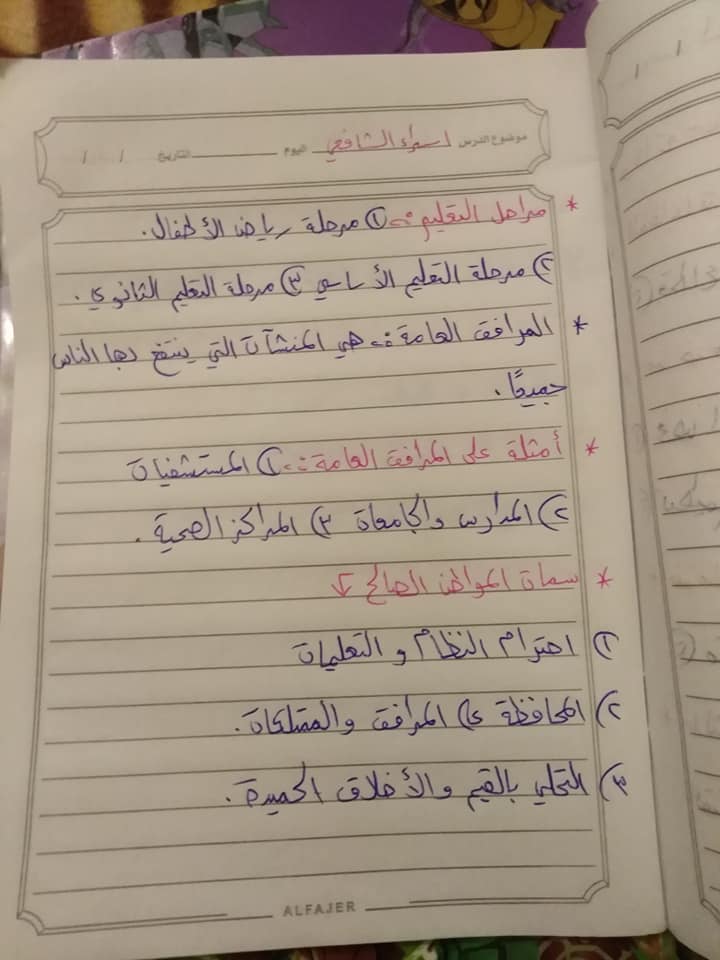 موضوع الدرس اسراء الشافعي اليوم التاريخ / /
* مراحل التعليم :- ١) مرحلة رياض الأطفال.
٢) مرحلة التعليم الأساسي ٣) مرحلة التعليم الثانوي.
* المرافق العامة :- هي المنشآت التي ينتفع بها الناس
جميعًا.
* أمثلة على المرافق العامة :- ١) المستشفيات
٢) المدارس والجامعات ٣) المراكز الصحية.
* سمات المواطن الصالح ↓
١) احترام النظام و التعليمات
٢) المحافظة على المرافق والممتلكات.
٣) التحلي بالقيم والأخلاق الحميدة.
ALFAJER